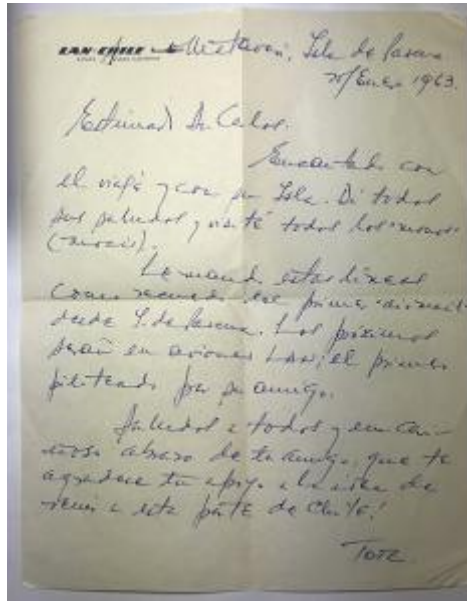 LAN-CHILE
Mataveri, Isla de Pascua
20/Enero 1963.
Estimado Dn Carlos.
Encantado con
el viaje y con su Isla. Di todos
sus saludos y visité todos los "monos"
(moais).
Le mando estas líneas
como recuerdo del primer
desde I. de Pascua. Los próximos
serán en aviones LAN; el primero
piloteado por su amigo.
Saludos a todos y un cari-
ñoso abrazo de tu amigo, que te
agradece tu apoyo a la idea de
venir a esta parte de Chile!